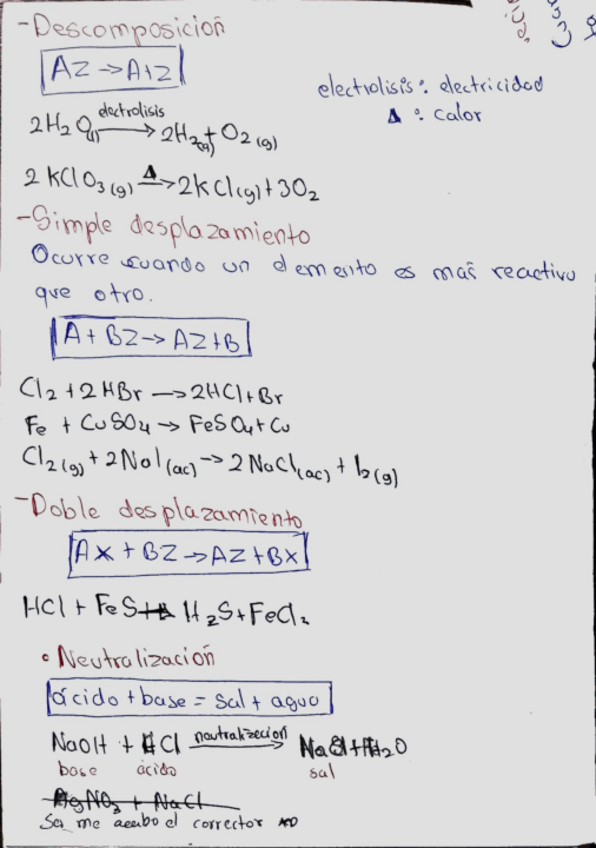 -Descomposición
AZ → A+Z
electrolisis: electricidad
Δ : calor
2H₂O(l) electrolisis → 2H₂(g) + O₂(g)
2 KClO₃(g) Δ → 2KCl(g) + 3O₂
-Simple desplazamiento
Ocurre cuando un elemento es más reactivo
que otro.
A + BZ → AZ + B
Cl₂ + 2HBr → 2HCl + Br
Fe + CuSO₄ → FeSO₄ + Cu
Cl₂(g) + 2NaI(ac) → 2NaCl(ac) + I₂(g)
-Doble desplazamiento
AX + BZ → AZ + BX
HCl + FeS → H₂S + FeCl₂
• Neutralización
ácido + base = sal + agua
NaOH + HCl neutralización → NaCl + H₂O
base ácido sal
AgNO₃ + NaCl
me acabo el corrector